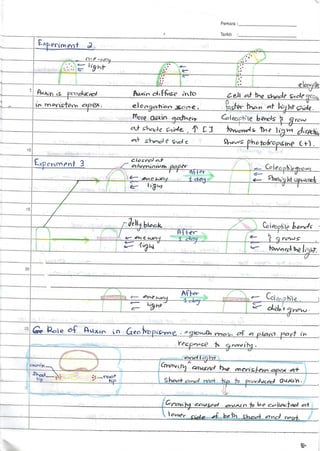 Perkara :
Tarikh :
Experiment 2
one-way
light
Auxin is produced
Auxin diffuse into
cell at the shade side
in meristem apex.
elongation zone.
faster than at light side.
More auxin gathers
Coleoptile bends & grow
at shade side, ↑ [ ]
towards the light
at shade side
Shows phototropisme (+).
Experiment 3
paper
After
1 day
one way
light
Straight upward
Jelly block
After
1 day
one way
light
Coleoptile bends
& grows
toward the light.
After
1 day
one way
light
Coleoptile
didn't grow
Role of Auxin in Geotropisme. - growth of a plant part in
response to gravity.
Gravity caused the meristem apex at
shoot and root tip to produced auxin.
auxin
shoot
tip
root
tip
Gravity caused auxin to be collected at
lower side of both shoot and root.